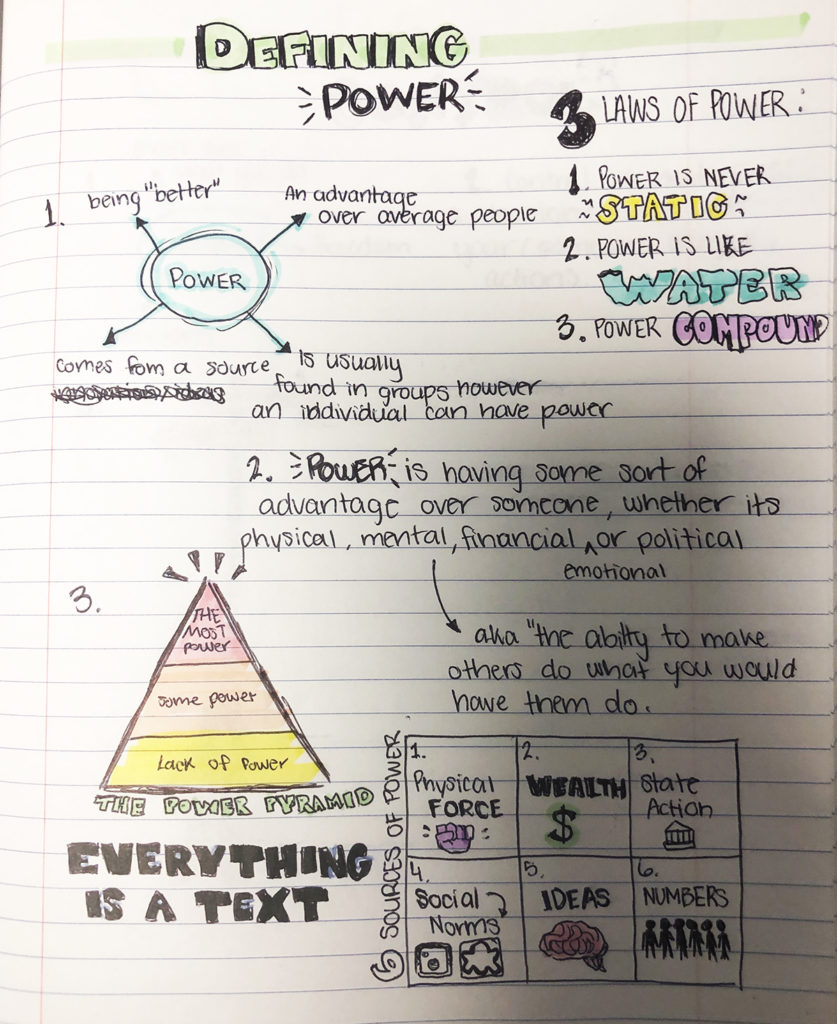 DEFINING
POWER
3 LAWS OF POWER:
1. POWER IS NEVER
~STATIC~
2. POWER IS LIKE
WATER
3. POWER COMPOUND
1.
being "better"
An advantage
over average people
POWER
comes from a source
is usually
found in groups however
an individual can have power
2. POWER is having some sort of
advantage over someone, whether its
physical, mental, financial ^ or political
emotional
aka "the abilty to make
others do what you would
have them do.
3.
THE
MOST
power
some power
Lack of Power
THE POWER PYRAMID
EVERYTHING
IS A TEXT
6 SOURCES OF POWER
1.
Physical
FORCE
2.
WEALTH
$
3.
State
Action
4.
Social
Norms
5.
IDEAS
6.
NUMBERS